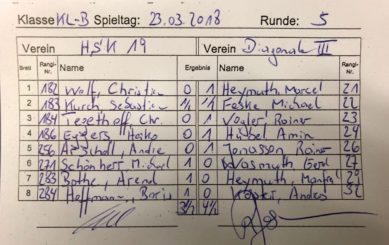 Klasse KL-B Spieltag: 23.03.2018 Runde: 5
Verein HSK 19 Verein Diagonale III
Brett Rangl-Nr. Name Ergebnis Name Rangl-Nr.
1 182 Wolf, Christian 0 1 Heymuth, Marcel 21
2 183 Kurch, Sebastian ½ ½ Feske, Michael 22
3 184 Tegethoff, Chr. 0 1 Vogler, Rainer 23
4 186 Eggers, Heiko 1 0 Hübel, Amin 24
5 256 Schall, Andre 0 1 Jonasson, Rainer 26
6 271 Schönherr, Michael 1 0 Wasmuth, Gerd 27
7 283 Bothe, Arend 1 0 Heymuth, Manfred 29
8 284 Hoffmann, Boris 0 Andes 32
3½ 4½